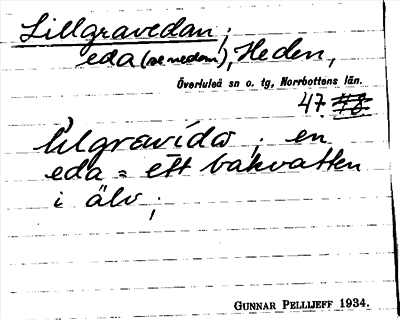 Lillgravedan;
eda (se nedan), Heden,
Överluleå sn o. tg, Norrbottens län.
47
lìlgravída ; en
eda = ett bakvatten
i älv;
GUNNAR PELLIJEFF 1934.